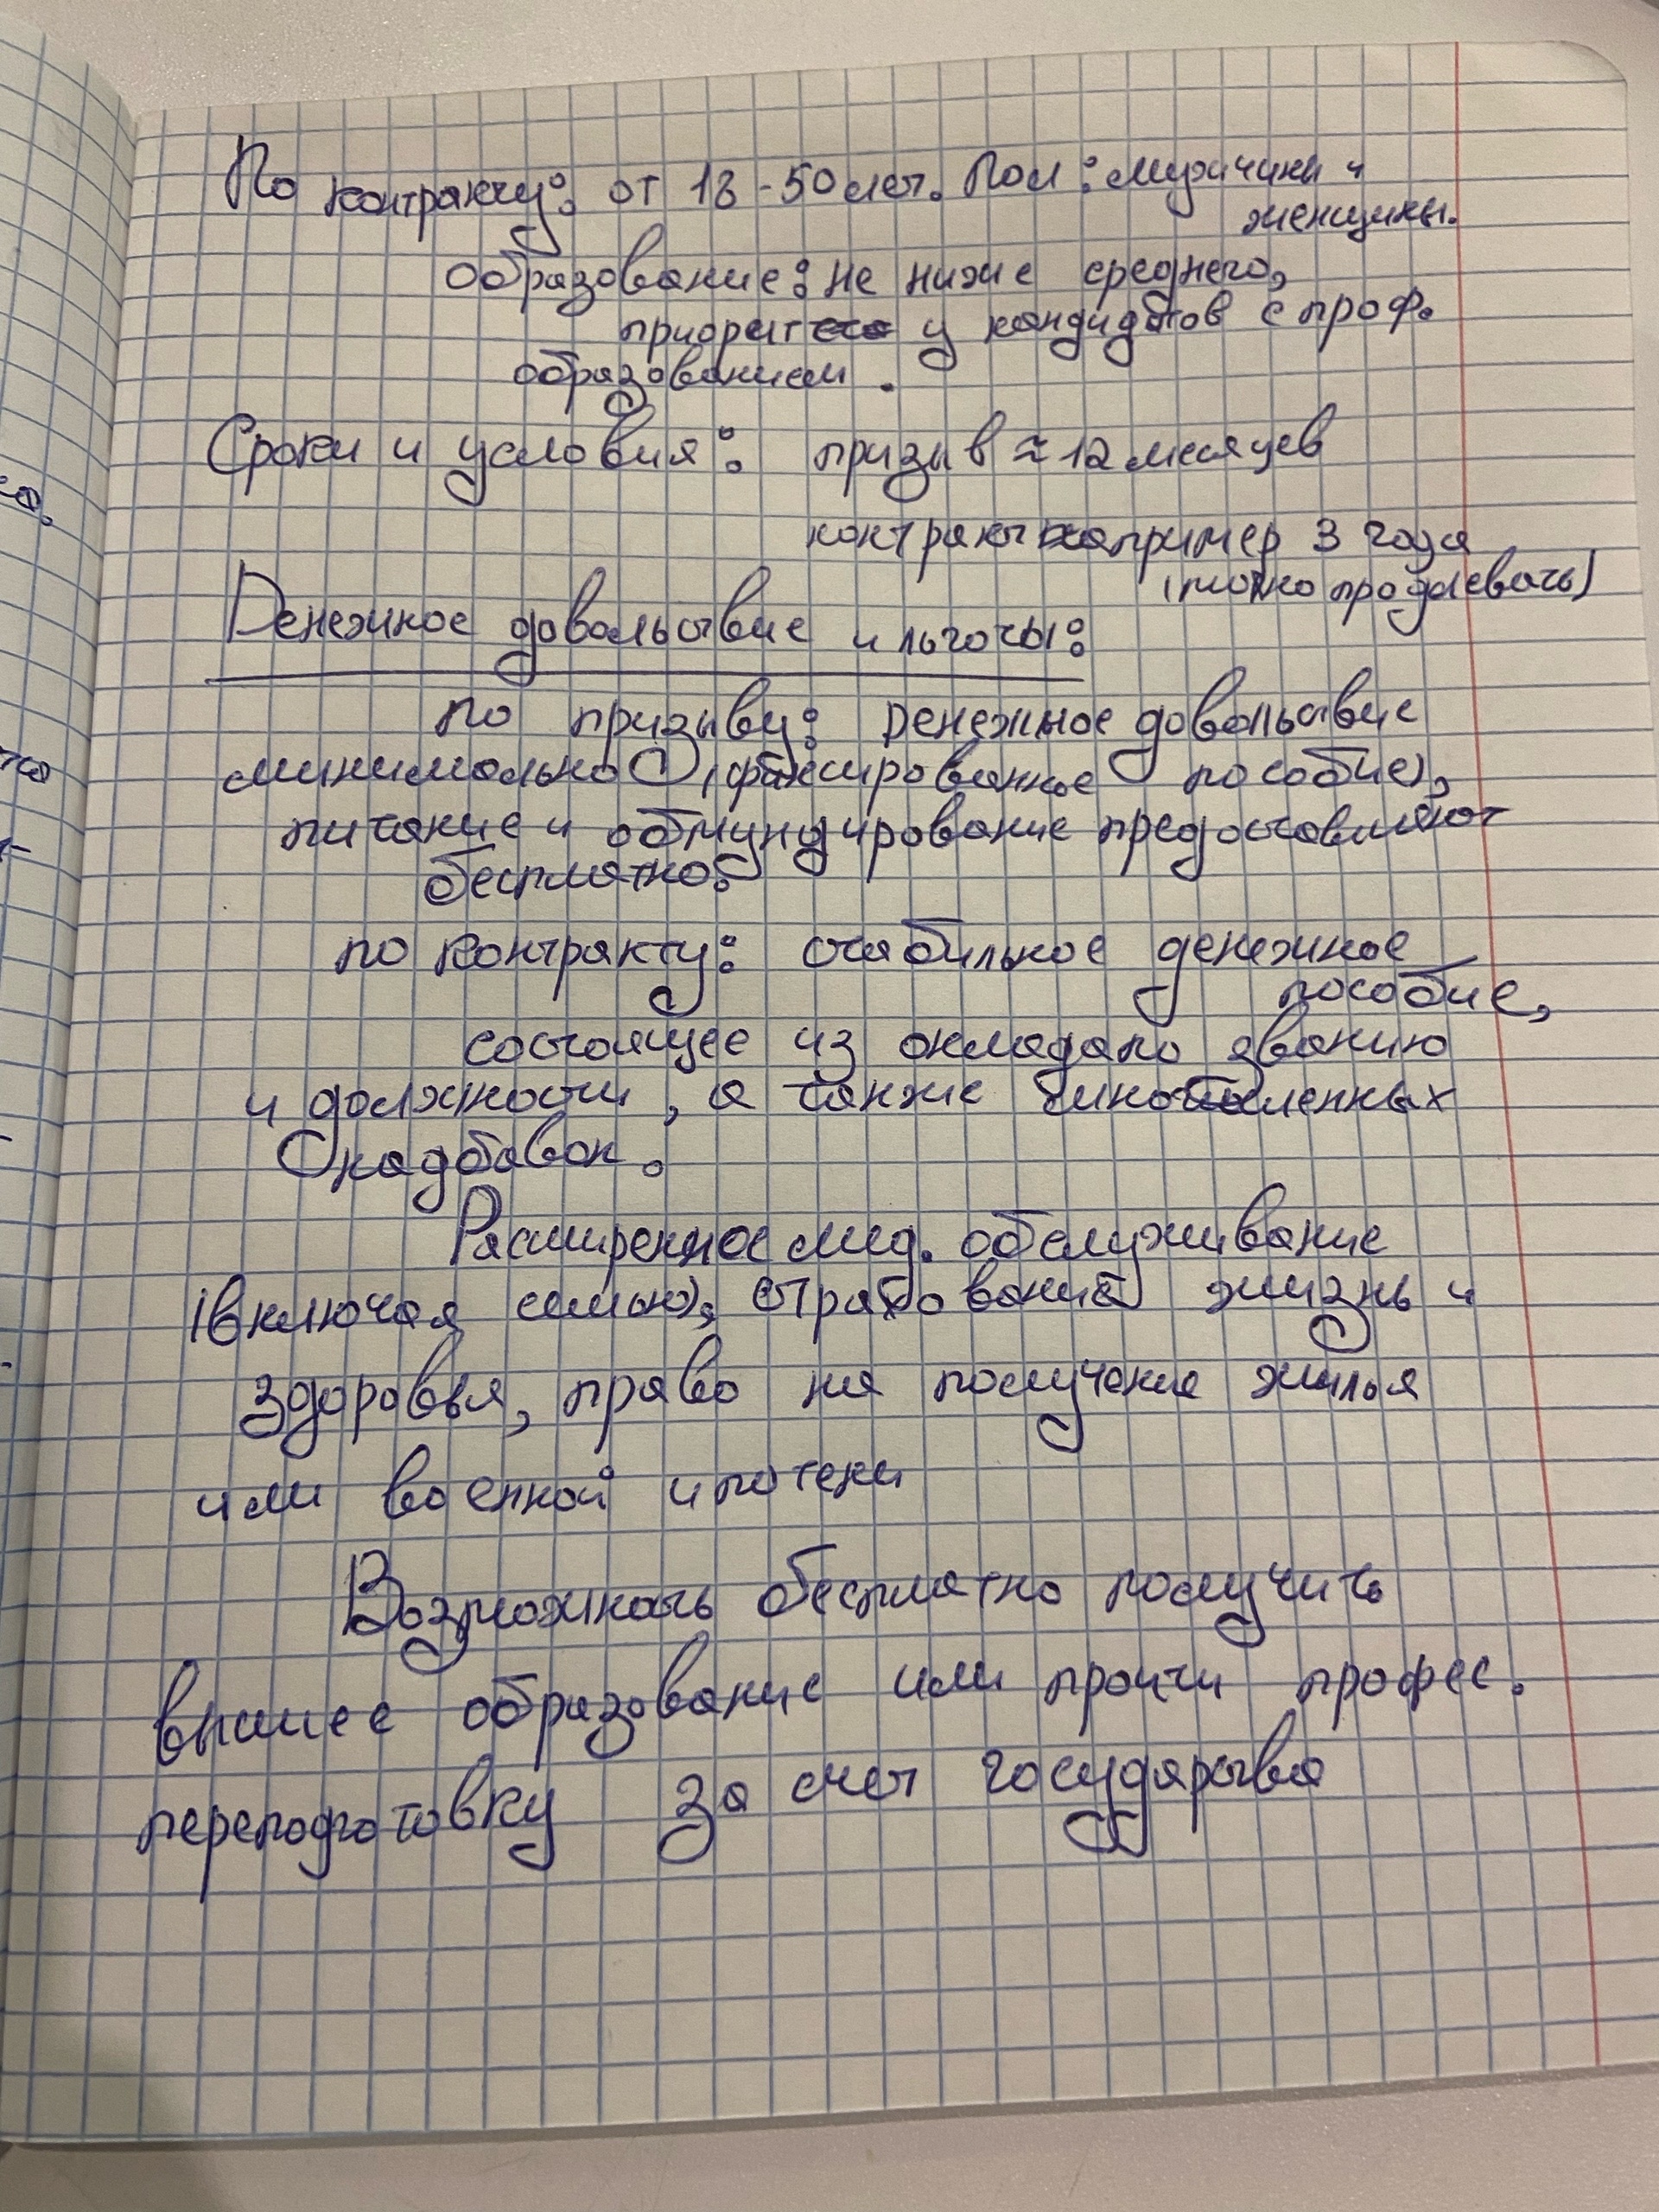 По контракту: от 18-50 лет. Пол: мужчины и
женщины.
образование: не ниже среднего,
приоритет у кандидатов с проф.
образованием.
Сроки и условия: призыв ≈ 12 месяцев
контракт например 3 года
(можно продлевать)
Денежное довольствие и льготы:
по призыву: Денежное довольствие
минимально (фиксированное пособие),
питание и обмундирование предоставляют
бесплатно.
по контракту: стабильное денежное
пособие,
состоящее из оклада по званию
и должности, а также
надбавок.
Расширенное мед. обслуживание
(включая семью), страхование жизнь и
здоровья, право на получение жилья
или военной ипотеки
Возможность бесплатно получить
высшее образование или пройти профес.
переподготовку за счет государства